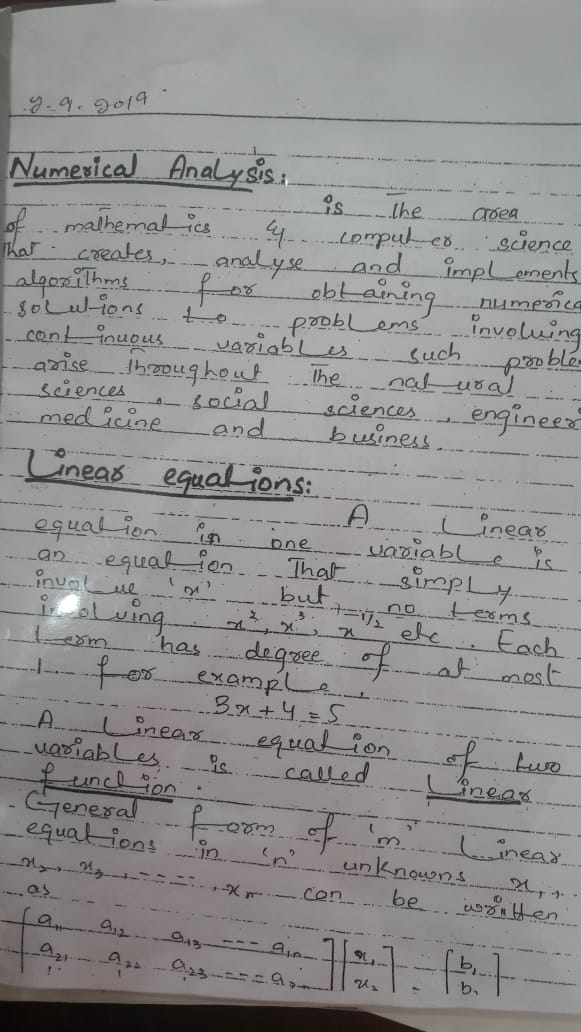 2.9.2019
Numerical Analysis:
is the area
of mathematics & computer science
that creates, analyse and implements
algorithms for obtaining numerica
solutions to problems involving
continuous variables such proble
arise throughout the natural
sciences, social sciences, engineer
medicine and business.
Linear equations:
A Linear
equation in one variable is
an equation That simply
involve 'x' but no terms
involving x², x³, x^1/2 etc. Each
term has degree of at most
1 for example,
3x+4=5
A Linear equation of two
variables is called Linear
function.
General form of 'm' Linear
equations in 'n' unknowns x1,
x2, x3, -----, xn can be written
as
[a11 a12 a13 --- a1n] [x1] = [b1
a21 a22 a23 --- a2n x2 b